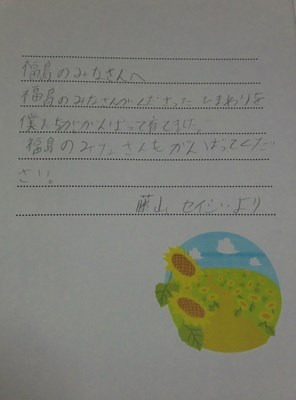 福島のみなさんへ
福島のみなさんがくださったひまわりを
僕たちががんばって育てました。
福島のみなさんもがんばってくだ
さい。
藤山 セイジより